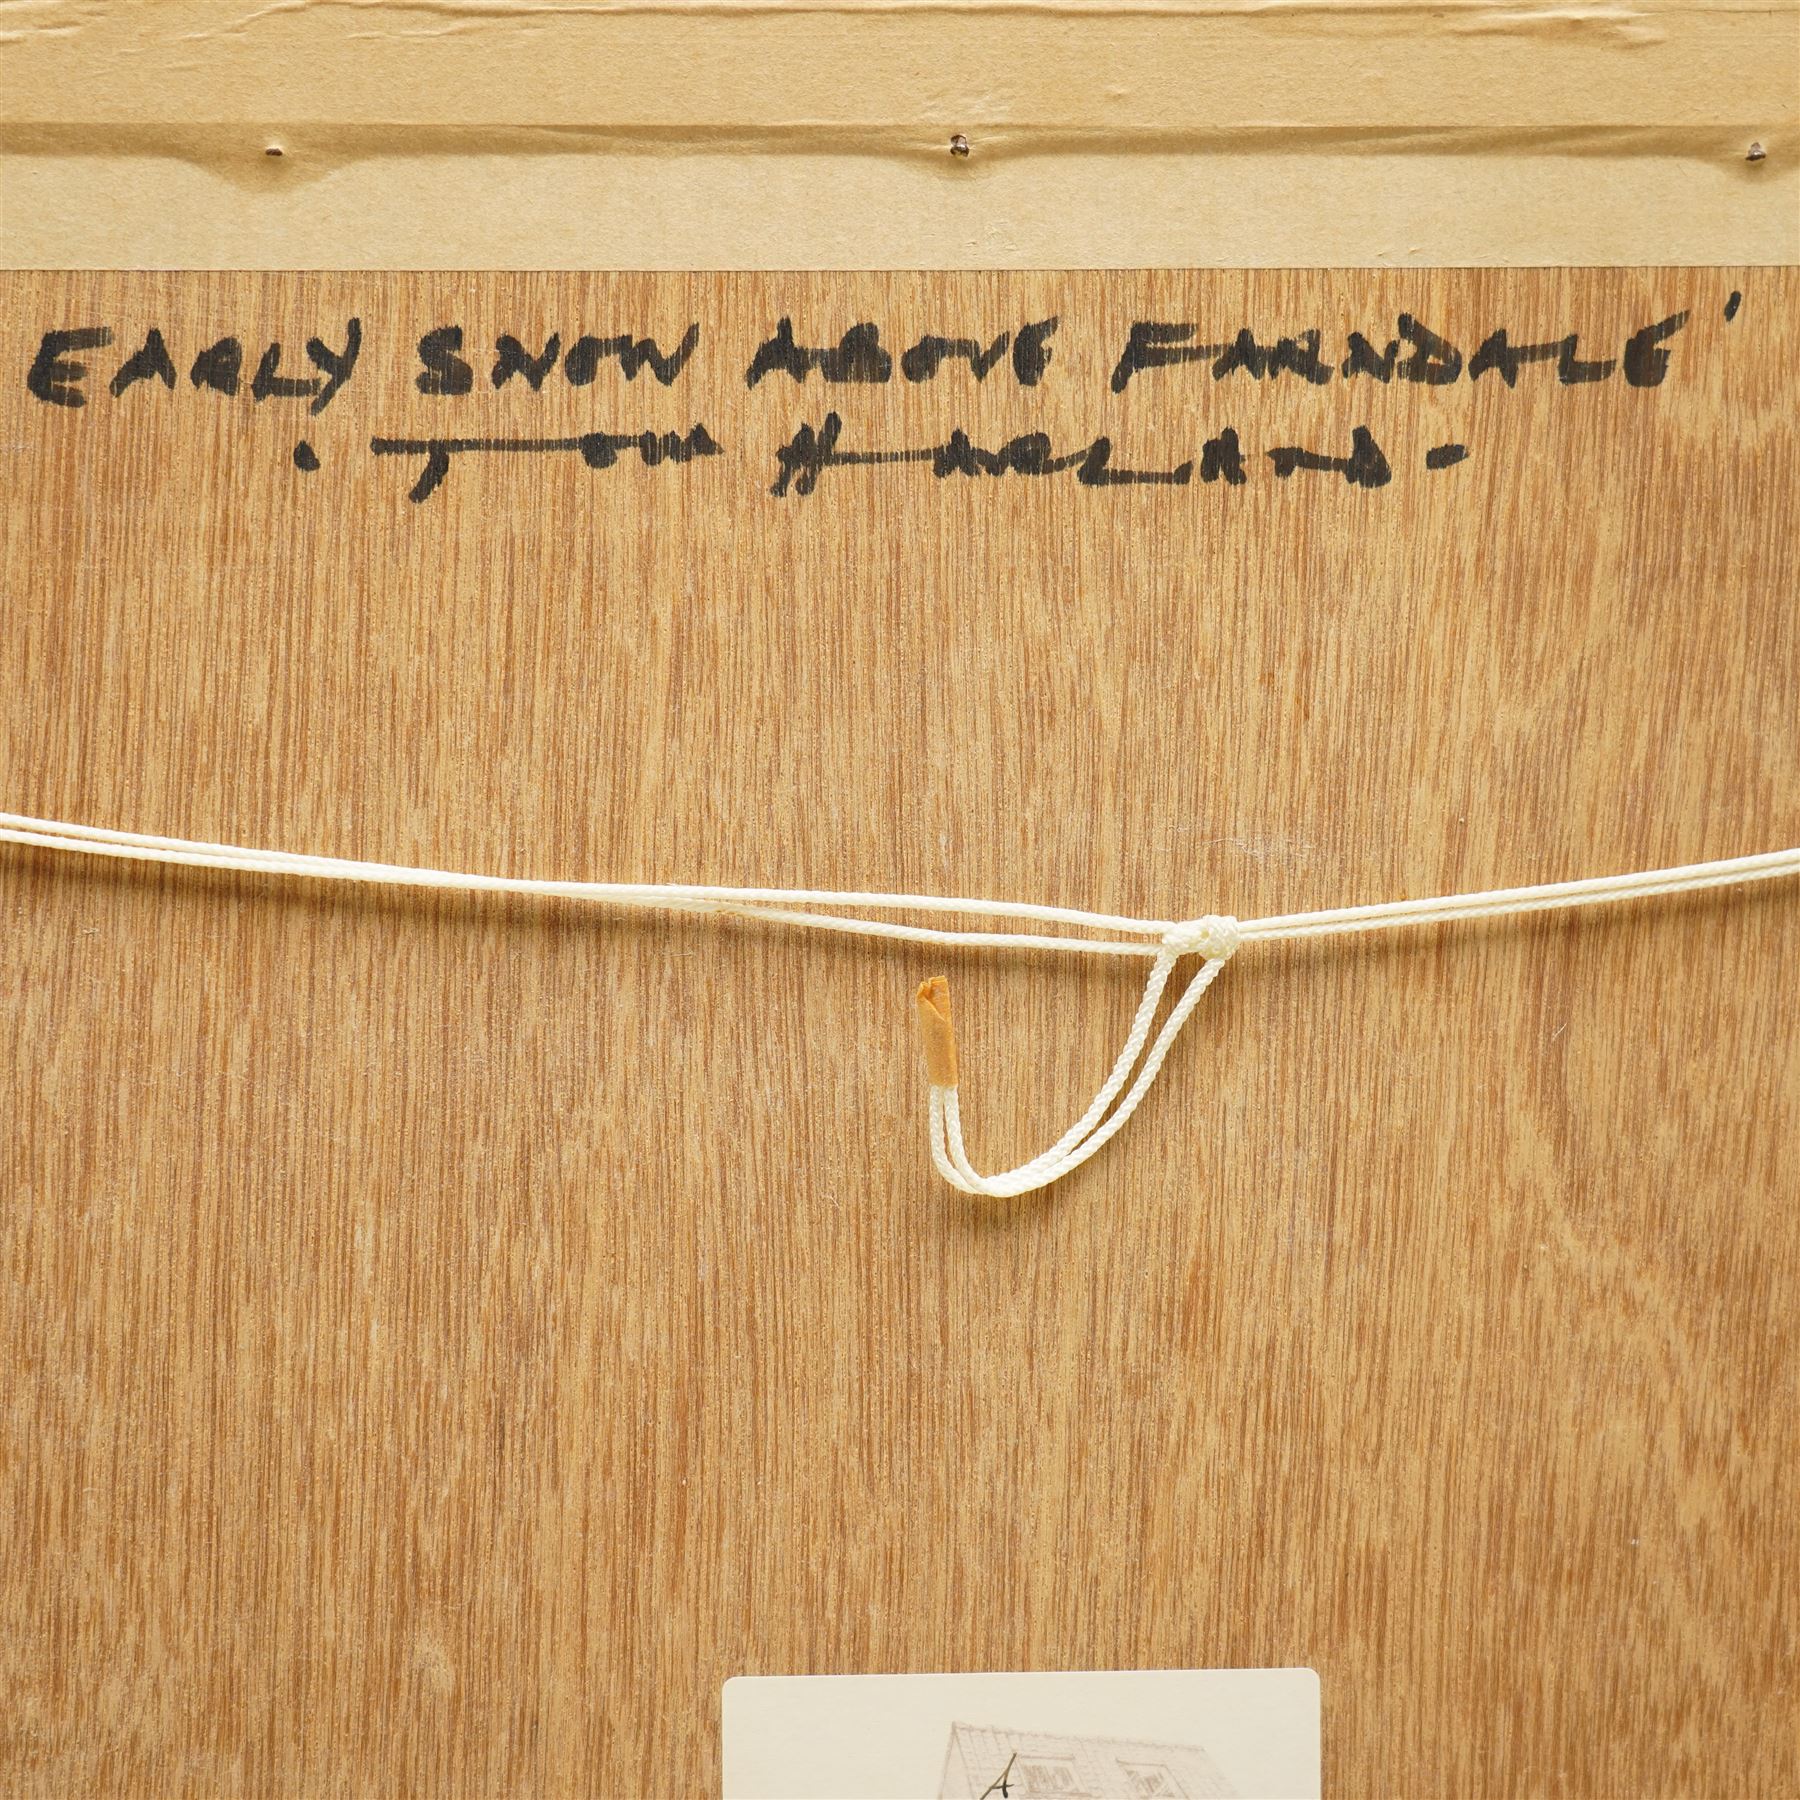 EARLY SNOW ABOVE FARNDALE'
. TOM HARLAND -
A